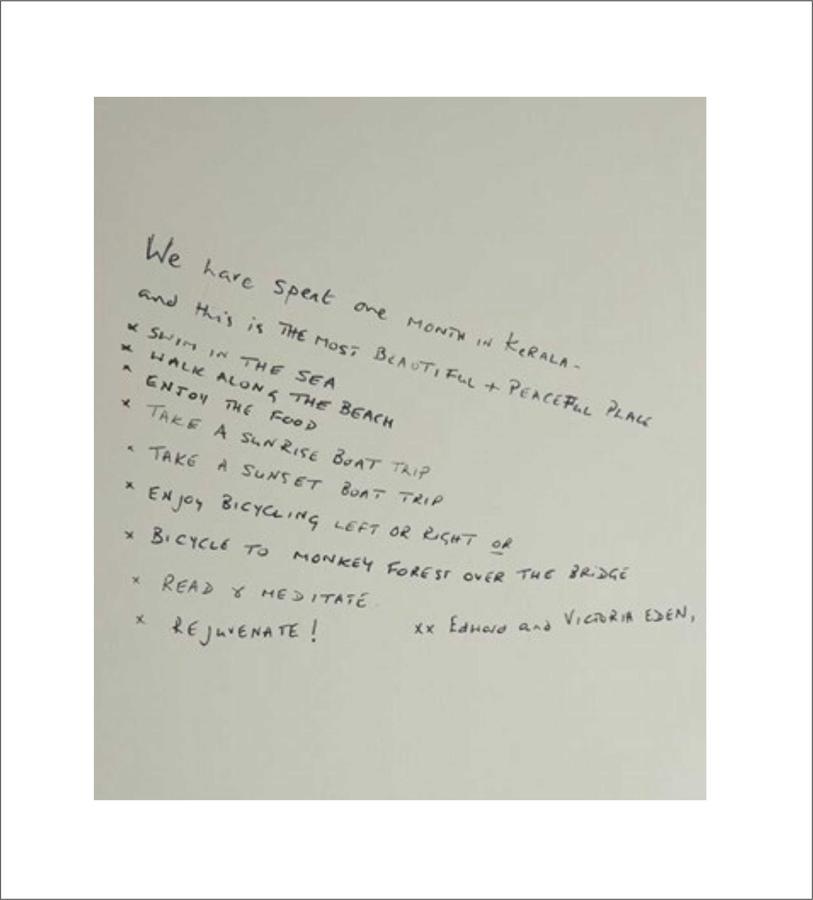 We have spent one MONTH IN KERALA -
and this is THE MOST BEAUTIFUL + PEACEFUL PLACE
x SWIM IN THE SEA
x WALK ALONG THE BEACH
x ENJOY THE FOOD
x TAKE A SUNRISE BOAT TRIP
x TAKE A SUNSET BOAT TRIP
x ENJOY BICYCLING LEFT OR RIGHT OR
x BICYCLE TO MONKEY FOREST OVER THE BRIDGE
x READ & MEDITATE
x REJUVENATE!
xx Edward and VICTORIA EDEN,